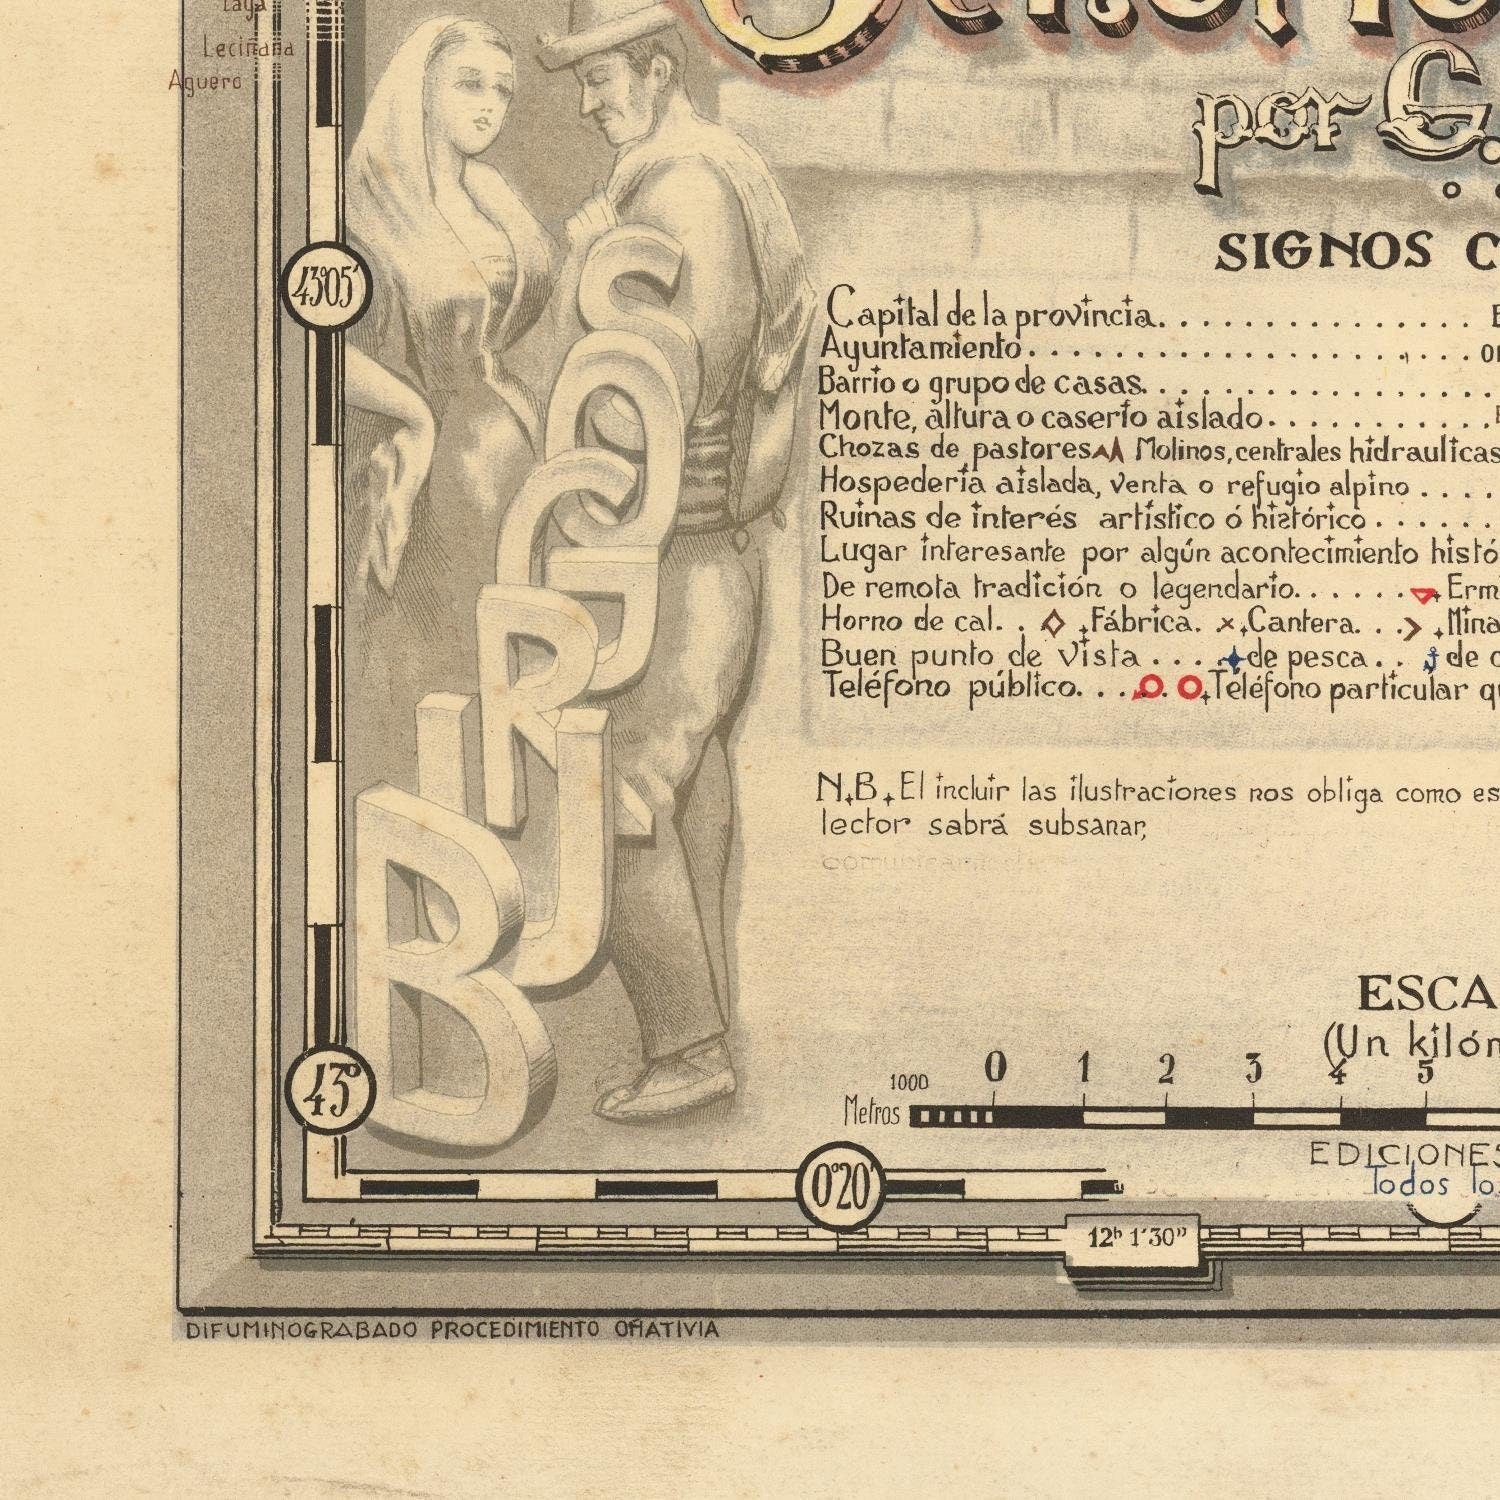 Lecinana
Aguero
por G.
SIGNOS C
43º05'
Capital de la provincia
Ayuntamiento
Barrio o grupo de casas
Monte, altura o caserío aislado
Chozas de pastores Molinos, centrales hidraulicas
Hospedería aislada, venta o refugio alpino
Ruinas de interés artístico ó histórico
Lugar interesante por algún acontecimiento histó
De remota tradición o legendario Erm
Horno de cal. Fábrica. Cantera. Mina
Buen punto de vista de pesca de c
Teléfono público. Teléfono particular qu
BURGOS
N.B. El incluir las ilustraciones nos obliga como es
lector sabrá subsanar,
ESCA
(Un kilóm
1000 0 1 2 3 4 5
Metros
43º
EDICIONES
Todos lo
0º20'
12ʰ 1'30"
DIFUMINOGRABADO PROCEDIMIENTO OÑATIVIA